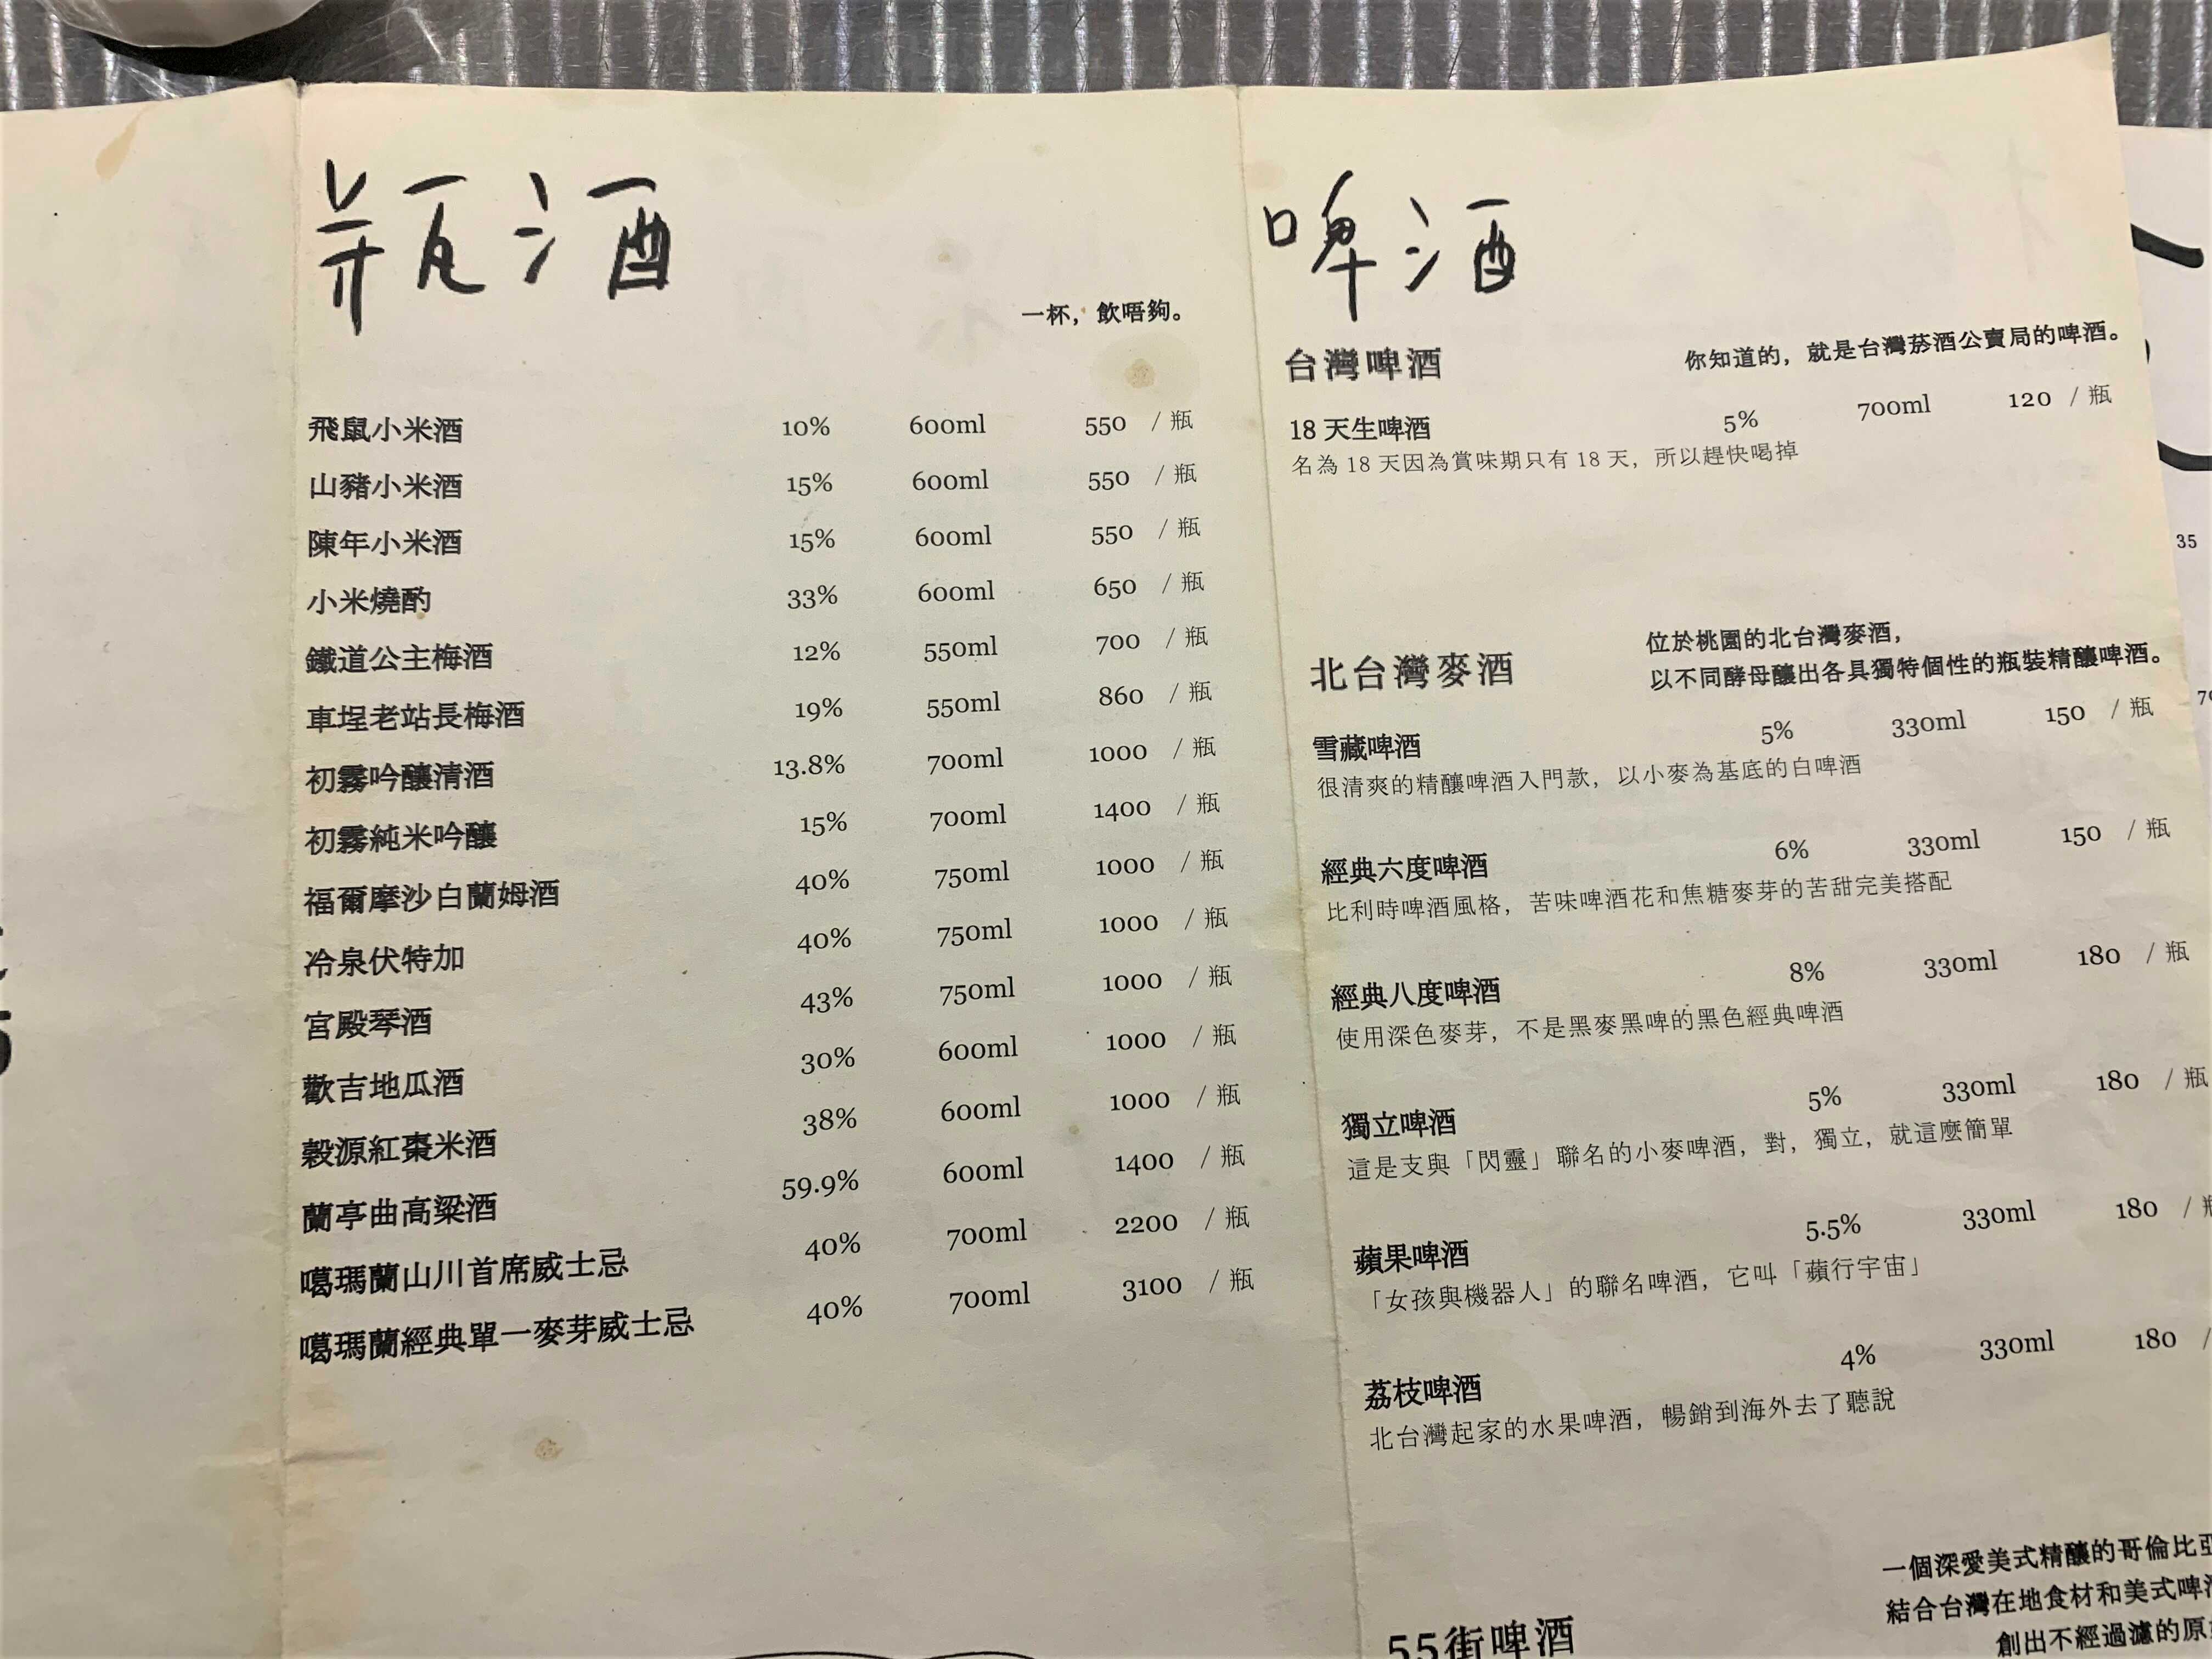 瓶酒
一杯，飲唔夠。
飛鼠小米酒 10% 600ml 550 / 瓶
山豬小米酒 15% 600ml 550 / 瓶
陳年小米酒 15% 600ml 550 / 瓶
小米燒酌 33% 600ml 650 / 瓶
鐵道公主梅酒 12% 550ml 700 / 瓶
車埕老站長梅酒 19% 550ml 860 / 瓶
初霧吟釀清酒 13.8% 700ml 1000 / 瓶
初霧純米吟釀 15% 700ml 1400 / 瓶
福爾摩沙白蘭姆酒 40% 750ml 1000 / 瓶
冷泉伏特加 40% 750ml 1000 / 瓶
宮殿琴酒 43% 750ml 1000 / 瓶
歡吉地瓜酒 30% 600ml 1000 / 瓶
穀源紅棗米酒 38% 600ml 1000 / 瓶
蘭亭曲高粱酒 59.9% 600ml 1400 / 瓶
噶瑪蘭山川首席威士忌 40% 700ml 2200 / 瓶
噶瑪蘭經典單一麥芽威士忌 40% 700ml 3100 / 瓶
啤酒
台灣啤酒 你知道的，就是台灣菸酒公賣局的啤酒。
18 天生啤酒 5% 700ml 120 / 瓶
名為 18 天因為賞味期只有 18 天，所以趕快喝掉
位於桃園的北台灣麥酒，
北台灣麥酒 以不同酵母釀出各具獨特個性的瓶裝精釀啤酒。
雪藏啤酒 5% 330ml 150 / 瓶
很清爽的精釀啤酒入門款，以小麥為基底的白啤酒
經典六度啤酒 6% 330ml 150 / 瓶
比利時啤酒風格，苦味啤酒花和焦糖麥芽的苦甜完美搭配
經典八度啤酒 8% 330ml 180 / 瓶
使用深色麥芽，不是黑麥黑啤的黑色經典啤酒
獨立啤酒 5% 330ml 180 / 瓶
這是支與「閃靈」聯名的小麥啤酒，對，獨立，就這麼簡單
蘋果啤酒 5.5% 330ml 180 / 瓶
「女孩與機器人」的聯名啤酒，它叫「蘋行宇宙」
荔枝啤酒 4% 330ml 180 /
北台灣起家的水果啤酒，暢銷到海外去了聽說
一個深愛美式精釀的哥倫比亞
結合台灣在地食材和美式啤酒
55街啤酒 創出不經過濾的原
35